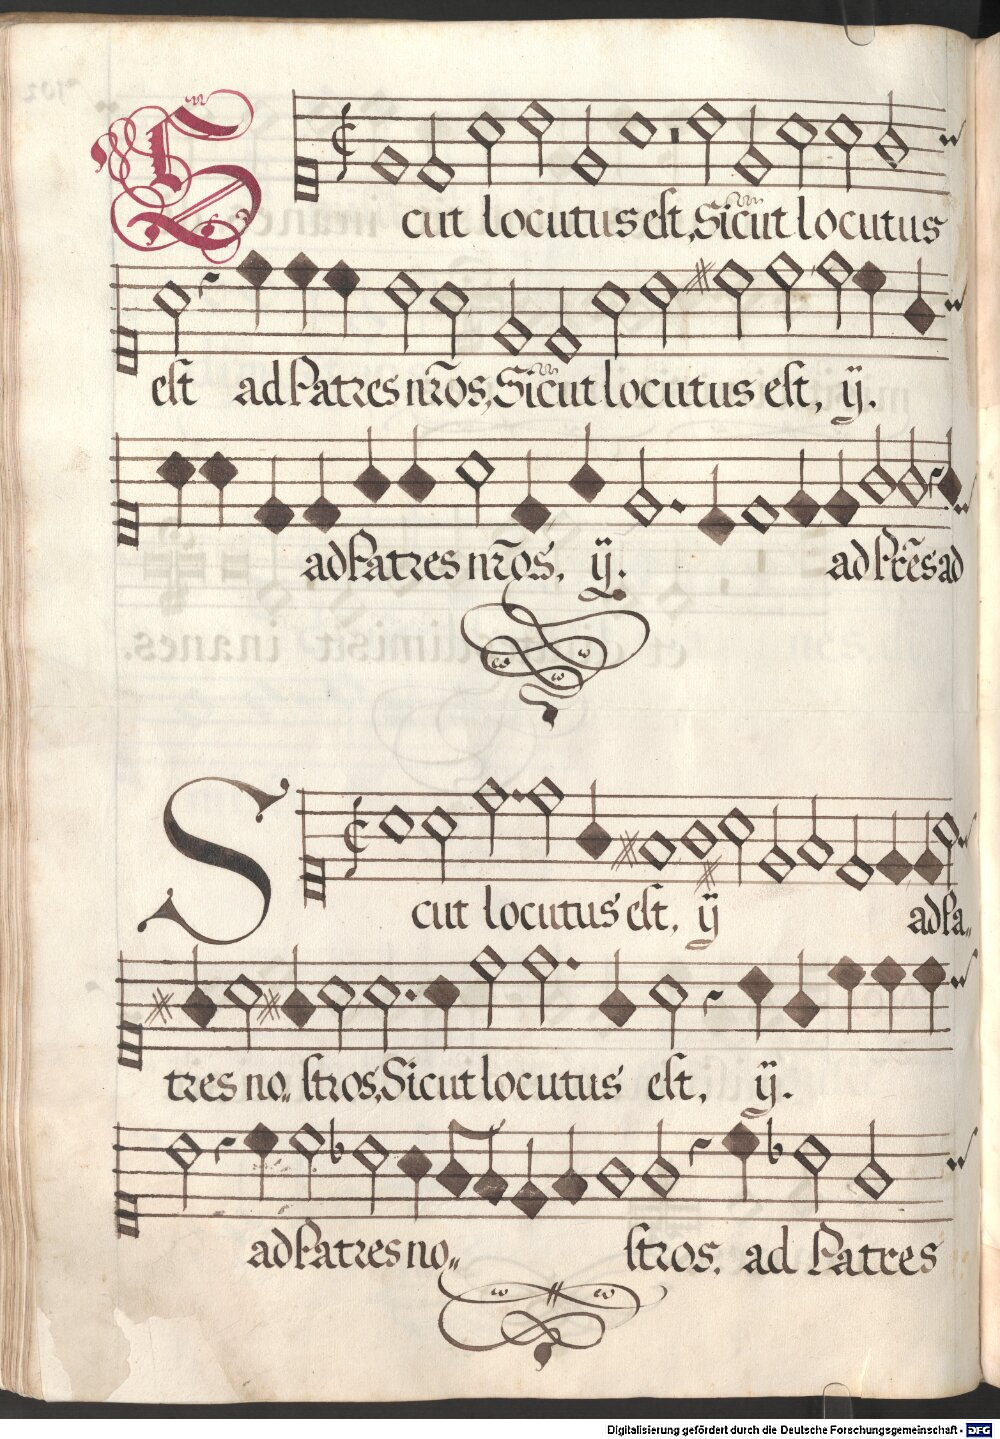 Sicut locutus est, Sicut locutus
est ad Patres nr̃os, Sicut locutus est, ij.
ad Patres nr̃os. ij. ad Pr̃es ad
Sicut locutus est, ij ad Pa„
tres no„ stros, Sicut locutus est, ij.
ad Patres no„ stros. ad Patres
Digitalisierung gefördert durch die Deutsche Forschungsgemeinschaft - DFG